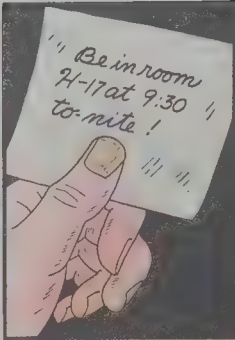 Be in room
H-17 at 9:30
to-nite!